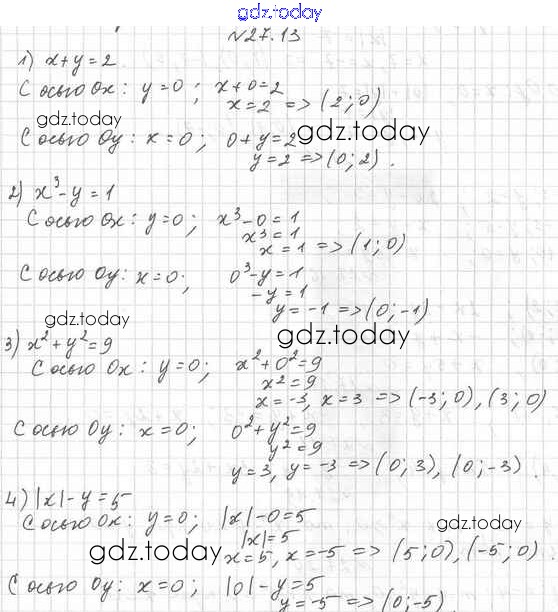 gdz.today
№27.13
1) x+y=2
С осью Ox: y=0; x+0=2
x=2 => (2; 0)
gdz.today
С осью Oy: x=0; 0+y=2
gdz.today
y=2 => (0; 2).
2) x³-y=1
С осью Ox: y=0; x³-0=1
x³=1
x=1 => (1; 0)
С осью Oy: x=0; 0³-y=1
-y=1
y=-1 => (0; -1)
gdz.today
gdz.today
3) x²+y²=9
С осью Ox: y=0; x²+0²=9
x²=9
x=-3, x=3 => (-3; 0), (3; 0)
С осью Oy: x=0; 0²+y²=9
y²=9
y=3, y=-3 => (0; 3), (0; -3).
4) |x|-y=5
С осью Ox: y=0; |x|-0=5
gdz.today
|x|=5
gdz.today
x=5, x=-5 => (5; 0), (-5; 0).
С осью Oy: x=0; |0|-y=5
y=-5 => (0; -5)